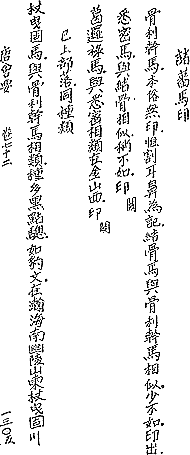 諸蕃馬印
骨利幹馬本俗無印惟割耳鼻為記結骨馬與骨利幹馬相似少不如印出
悉密馬與結骨相似稍不如印 闕
葛邏祿馬與悉密相類在金山西印 闕
已上部落同種類
杖曳固馬與骨利幹馬相類種多黑點驄如豹文在瀚海南幽陵山東杖曳固川
唐會要 卷七十二 一三〇五